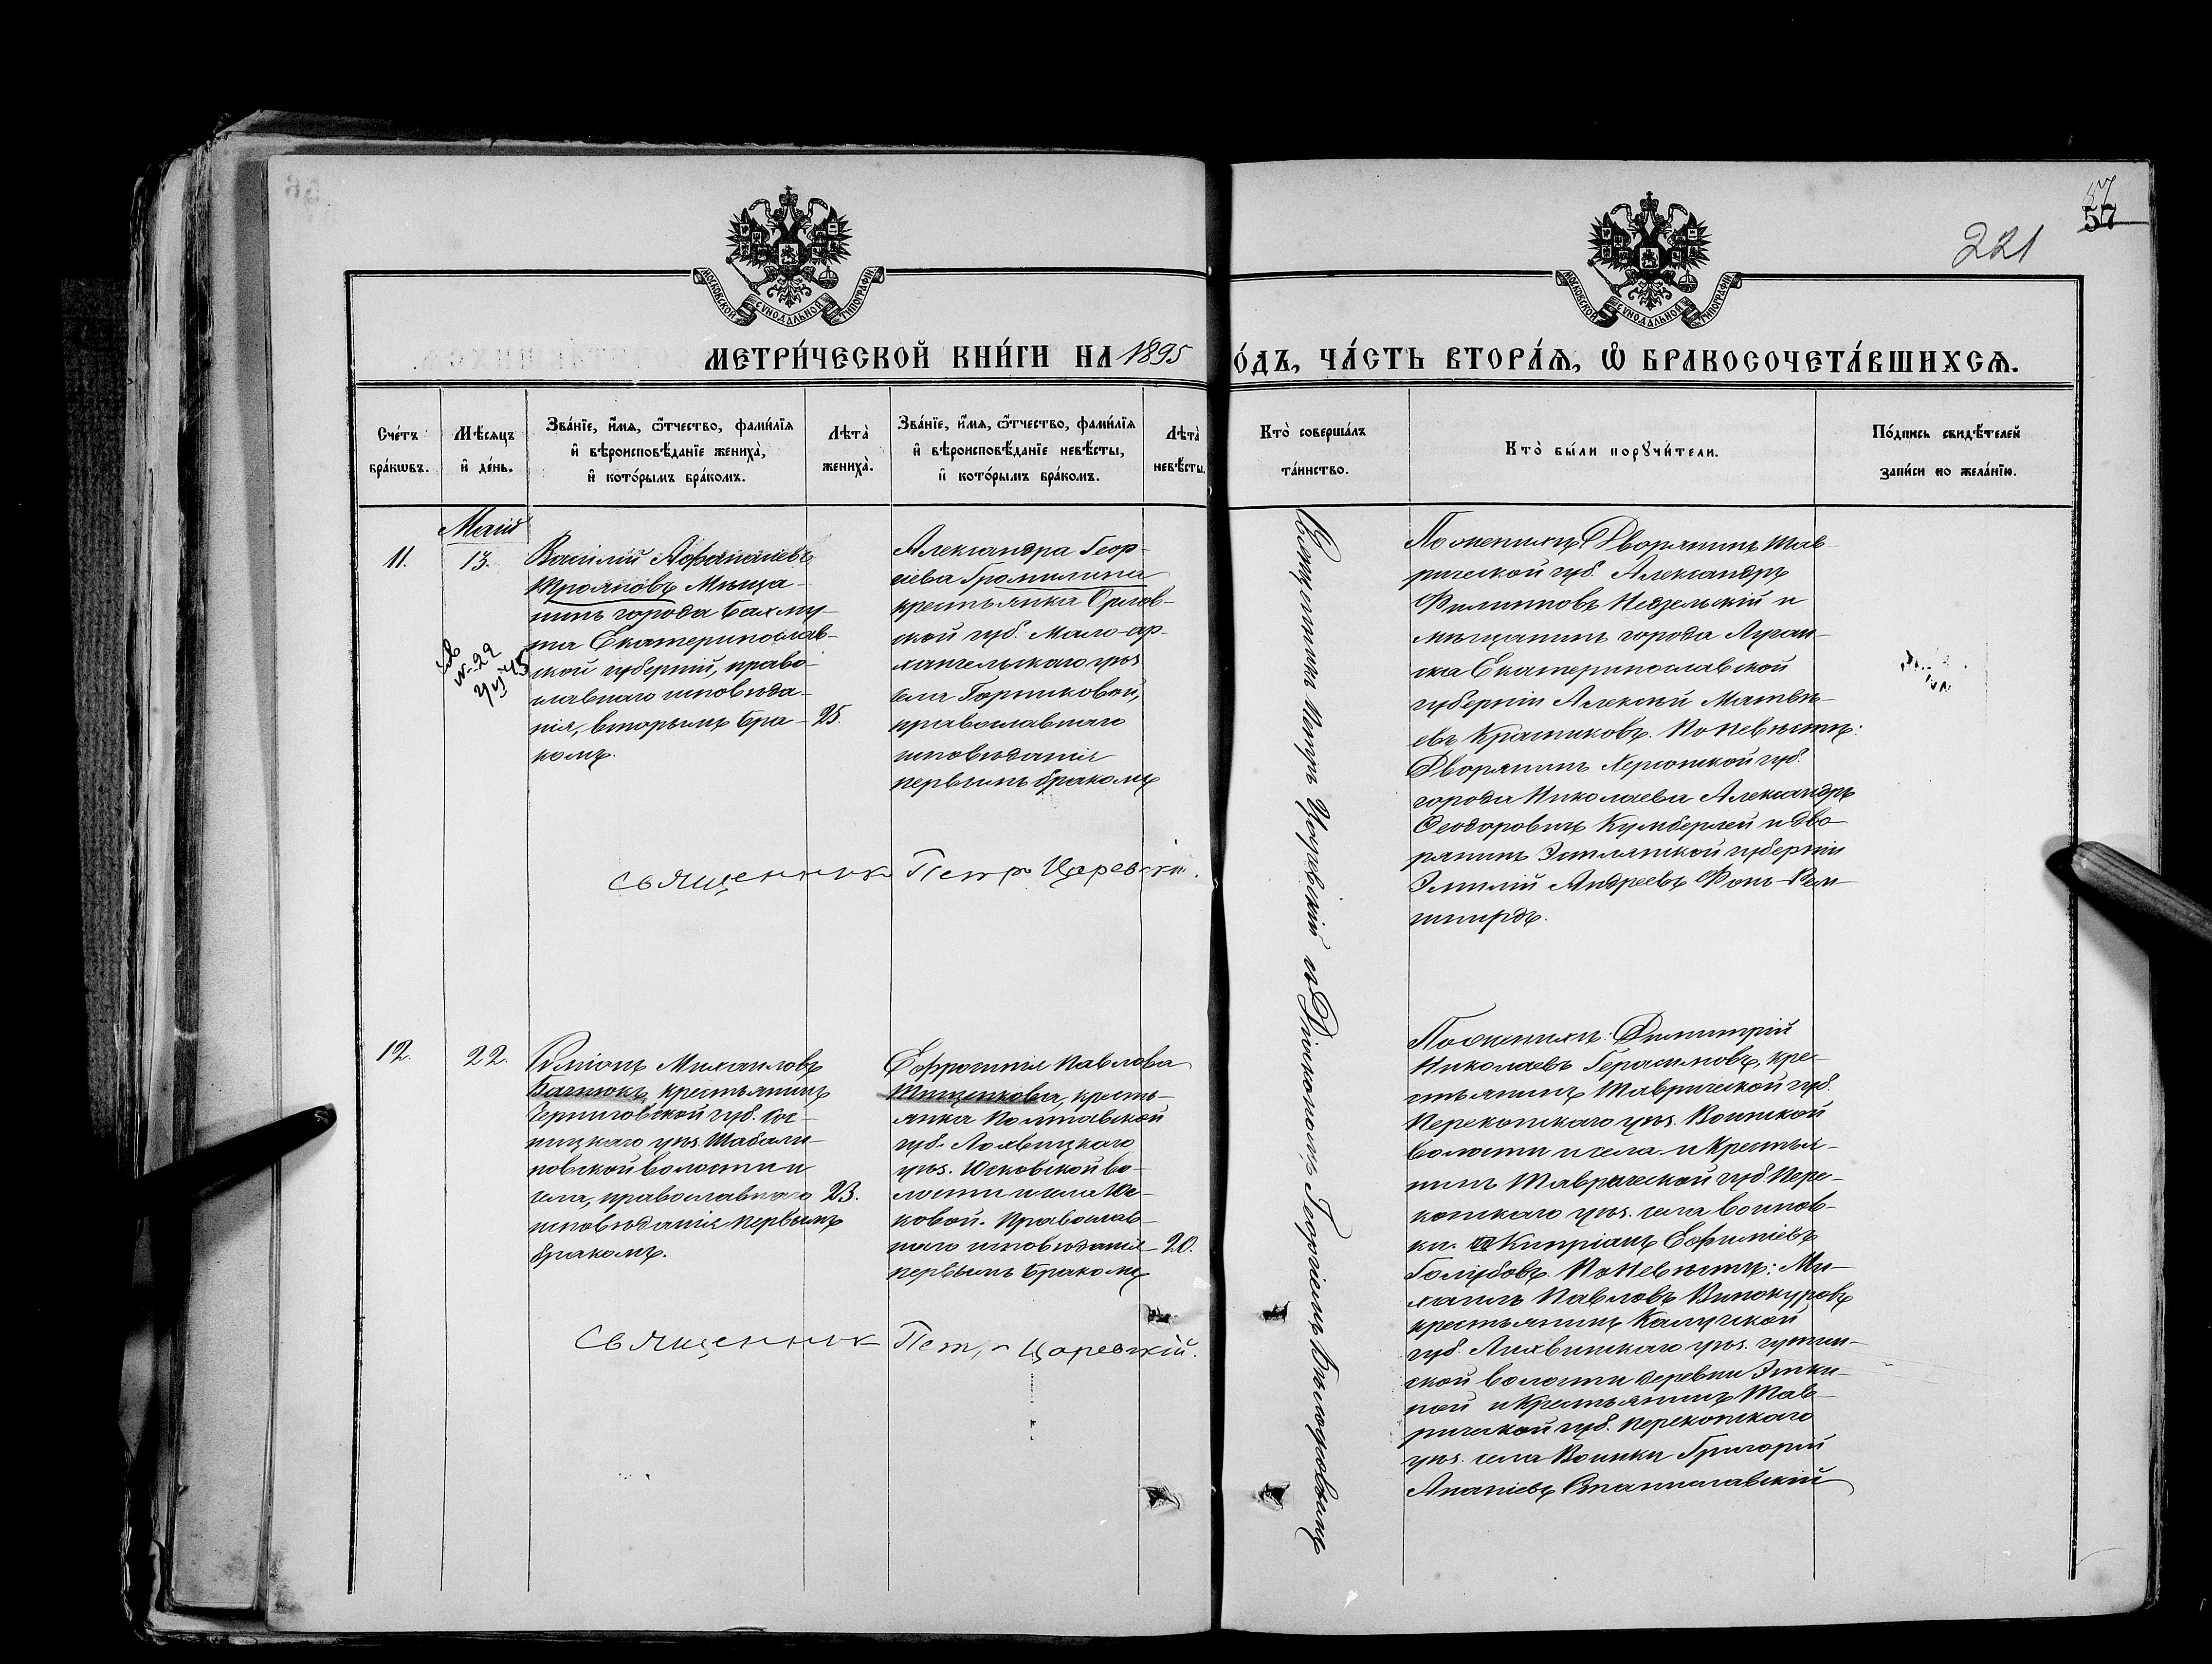 57
57
221
МОСКОВСКОЙ СѴНОДАЛЬНОЙ ТИПОГРАФІИ
МОСКОВСКОЙ СѴНОДАЛЬНОЙ ТИПОГРАФІИ
МЕТРИ́ЧЕСКОЙ КНИ́ГИ НА 1895
О́ДЪ, ЧА́СТЬ ВТОРА́Ѧ, Ѡ҆ БРАКОСОЧЕТА́ВШИХСѦ.
Сче́тъ
бра́кѡвъ.
Мѣ́сѧцъ
и҆ де́нь.
Зва́нїе, и҆́мѧ, ѻ҆́тчество, фами́лїѧ
и҆ вѣроисповѣ́данїе жениха̀,
и҆ кото́рымъ бра́комъ.
Лѣта̀
жениха̀.
Зва́нїе, и҆́мѧ, ѻ҆́тчество, фами́лїѧ
и҆ вѣроисповѣ́данїе невѣ́сты,
и҆ кото́рымъ бра́комъ.
Лѣта̀
невѣ́сты.
Кто̀ соверша́лъ
та́инство.
Кто̀ бы́ли порꙋчи́тели.
По́дпись свидѣ́телей
за́писи по жела́нїю.
Май
11.
13.
Василій Афанасіевъ
Трояновъ Мѣща-
нинъ города Бахму-
та Екатеринослав-
ской губерніи, право-
славнаго исповѣда-
нія, вторымъ бра-
комъ.
25.
Александра Геор-
гіева Громилина
крестьянка Орлов-
ской губ. Мало-ар-
хангельскаго уѣз.
села
православнаго
исповѣданія
первымъ бракомъ
Священникъ Петръ Царевскій.
Священникъ Петръ Царевскій съ Діакономъ Георгіемъ
По женихѣ: Дворянинъ Тав-
рической губ. Александръ
Филипповъ и
мѣщанинъ города Луган-
ска Екатеринославской
губерніи Алексѣй Матвѣ-
евъ Красниковъ. По невѣстѣ:
Дворянинъ Херсонской губ.
города Николаева Александръ
Феодоровичъ и дво-
рянинъ Эстляндской губерніи
Эмилій Андреевъ Фонъ-
12.
22.
Симіонъ Михаиловъ
крестьянинъ
Черниговской губ. Сос-
ницкаго уѣз. Шабали-
новской волости и
села, православнаго
исповѣданія первымъ
бракомъ.
23.
Ефросинія Павлова
крестьянка Полтавской
губ. Лохвицкаго
уѣз. Юсковской во-
лости и села Юс-
ковой. Православ-
наго исповѣданія
первымъ бракомъ
20.
Священникъ Петръ Царевскій.
По женихѣ: Димитрій
Николаевъ Герасимовъ, кре-
стьянинъ Таврической губ.
Перекопскаго уѣз. Воинской
волости и села и Крестья-
нинъ Таврической губ. Пере-
копскаго уѣз. села Воинов-
ки. Кипріанъ Ефиміевъ
Голубовъ. По невѣстѣ: Ми-
хаилъ Павловъ Винокуровъ
крестьянинъ Калужской
губ. Лихвинскаго уѣз.
ской волости деревни
и Крестьянинъ Тав-
рической губ. Перекопскаго
уѣз. села Воинки Григорій
Ананіевъ